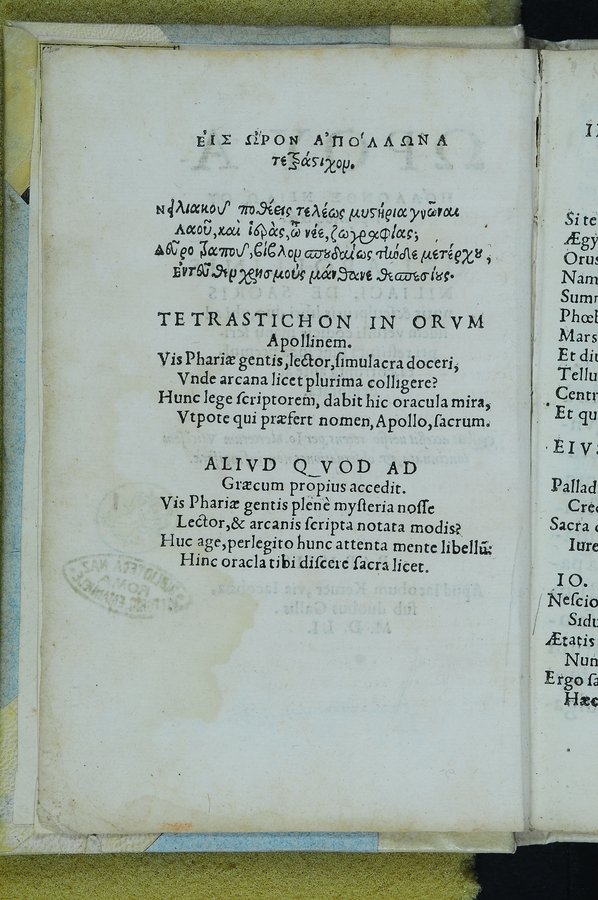 ΕἸΣ ΩΡΟΝ ἈΠΟΛΛΩΝΑ
τετράστιχον.
Νηλιακοῦ ποθέεις τελέως μυστήρια γνῶναι
Λαοῦ, καὶ ἱερᾶς, ὦ νέε, ζωγραφίας;
Δεῦρο βίβλον σπουδαίως τήνδε μετέρχου,
Ἐντεῦθεν χρησμοὺς μάνθανε θεσπεσίους.
TETRASTICHON IN ORVM
Apollinem.
Vis Phariæ gentis, lector, simulacra doceri,
Vnde arcana licet plurima colligere?
Hunc lege scriptorem, dabit hic oracula mira,
Vtpote qui præfert nomen, Apollo, sacrum.
ALIVD QVOD AD
Græcum propius accedit.
Vis Phariæ gentis plenè mysteria nosse
Lector, & arcanis scripta notata modis?
Huc age, perlegito hunc attenta mente libellũ:
Hinc oracla tibi discere sacra licet.
Si te
Ægy
Orus
Nam
Summ
Phœb
Mars
Et diu
Tellu
Centr
Et qu
EIVS
Pallad
Cred
Sacra
Iure
IO.
Nescio
Sidu
Ætatis
Num
Ergo sa
Hæc